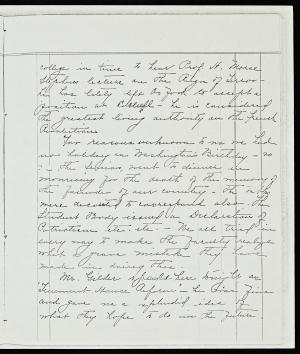 college in time to hear Prof. H. Morse
Stephens lecture on the Reign of Terror -
he has lately left to accept a
position at - he is considered
the greatest living authority on the French
Revolution.
For reasons unknown to us we had
now holiday on Washington's Birthday - so
the Seniors went to dinner in
mourning for the death of the memory of
the founder of our country - The
were decorated to correspond also. The
Student Body issued a Declaration of
Patriotism etc. etc. - We all tried in
every way to make the Faculty realize
what a grave mistake they have
made in doing this.
Mr. Gilder spoke here tonight on
"Tenement House Reform" - he was fine
and gave me a splendid idea of
what they hope to do in the future.